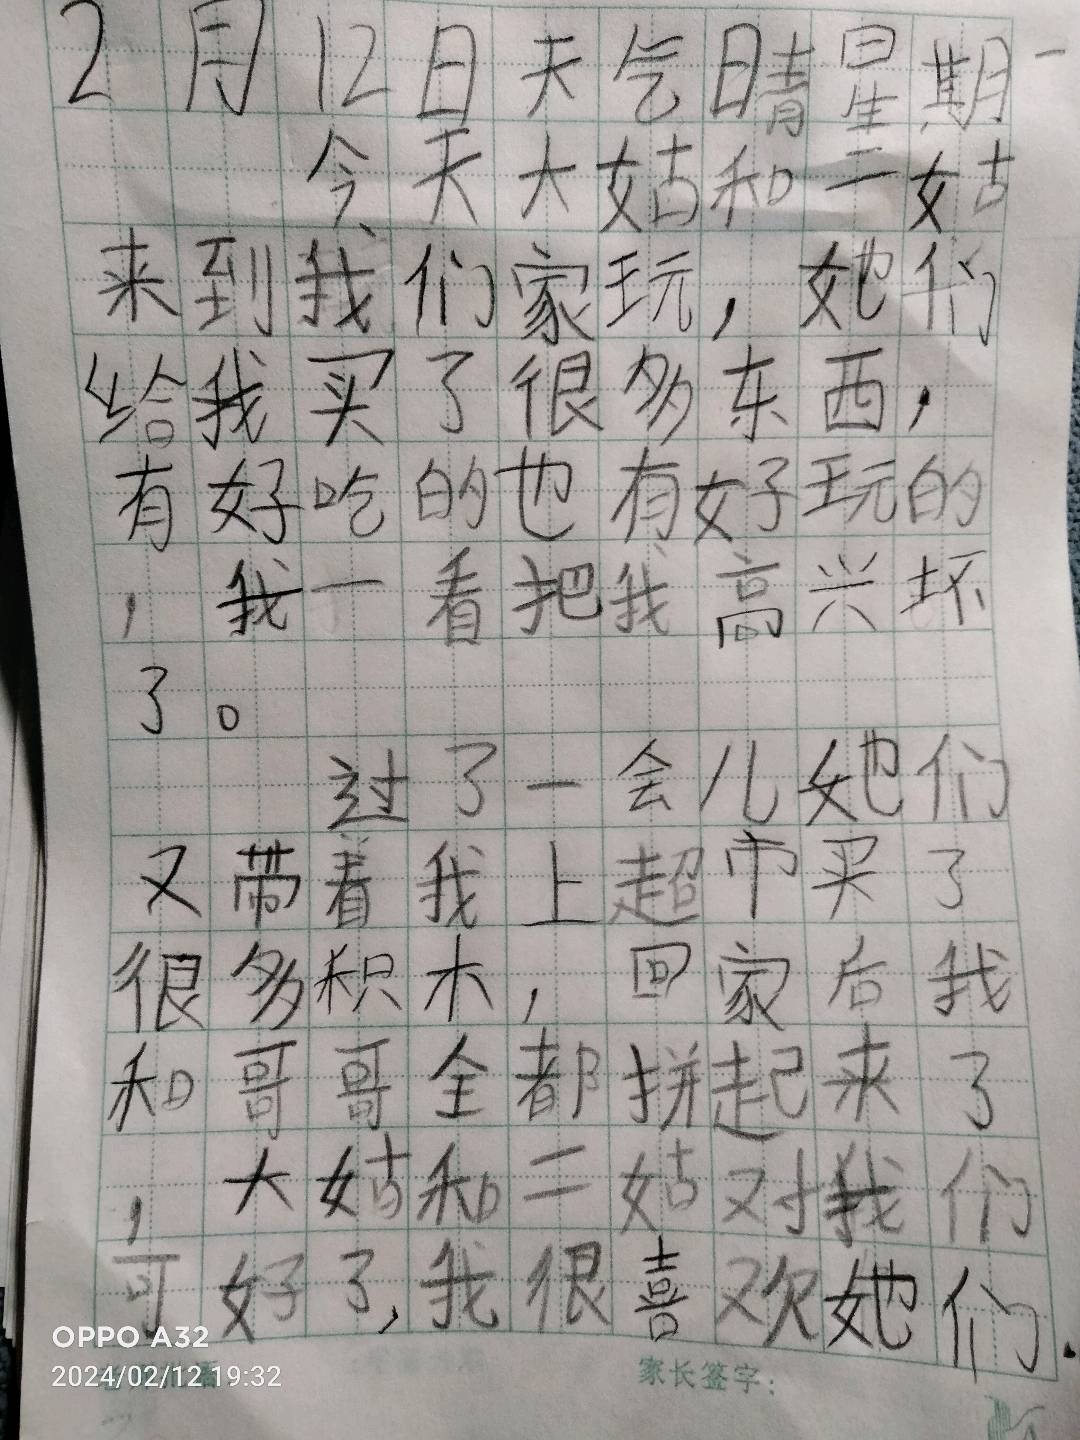 2月12日天气晴星期一
今天大姑和二姑
来到我们家玩，她们
给我买了很多东西，
有好吃的也有好玩的
，我一看把我高兴坏
了。
过了一会儿她们
又带着我上超市买了
很多积木，回家后我
和哥哥全都拼起来了
，大姑和二姑对我们
可好了，我很喜欢她们.
OPPO A32
2024/02/12 19:32
家长签字：